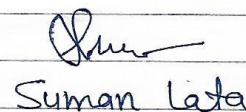 Suman Lata